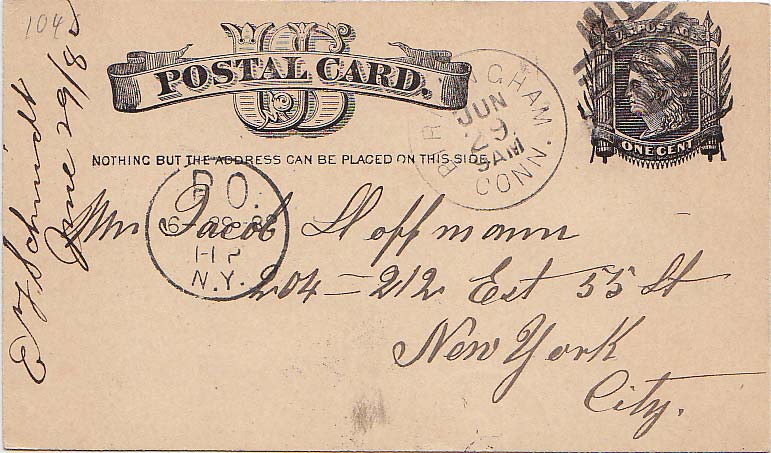 104
U.S. POSTAGE
US
POSTAL CARD.
ONE CENT
NOTHING BUT THE ADDRESS CAN BE PLACED ON THIS SIDE.
BIRMINGHAM
JUN
29
9AM
CONN.
P.O.
N.Y.
Mr Jacob Hoffmann
204=212 Est 55 St
New York
City.
Schmidt
June 29/8